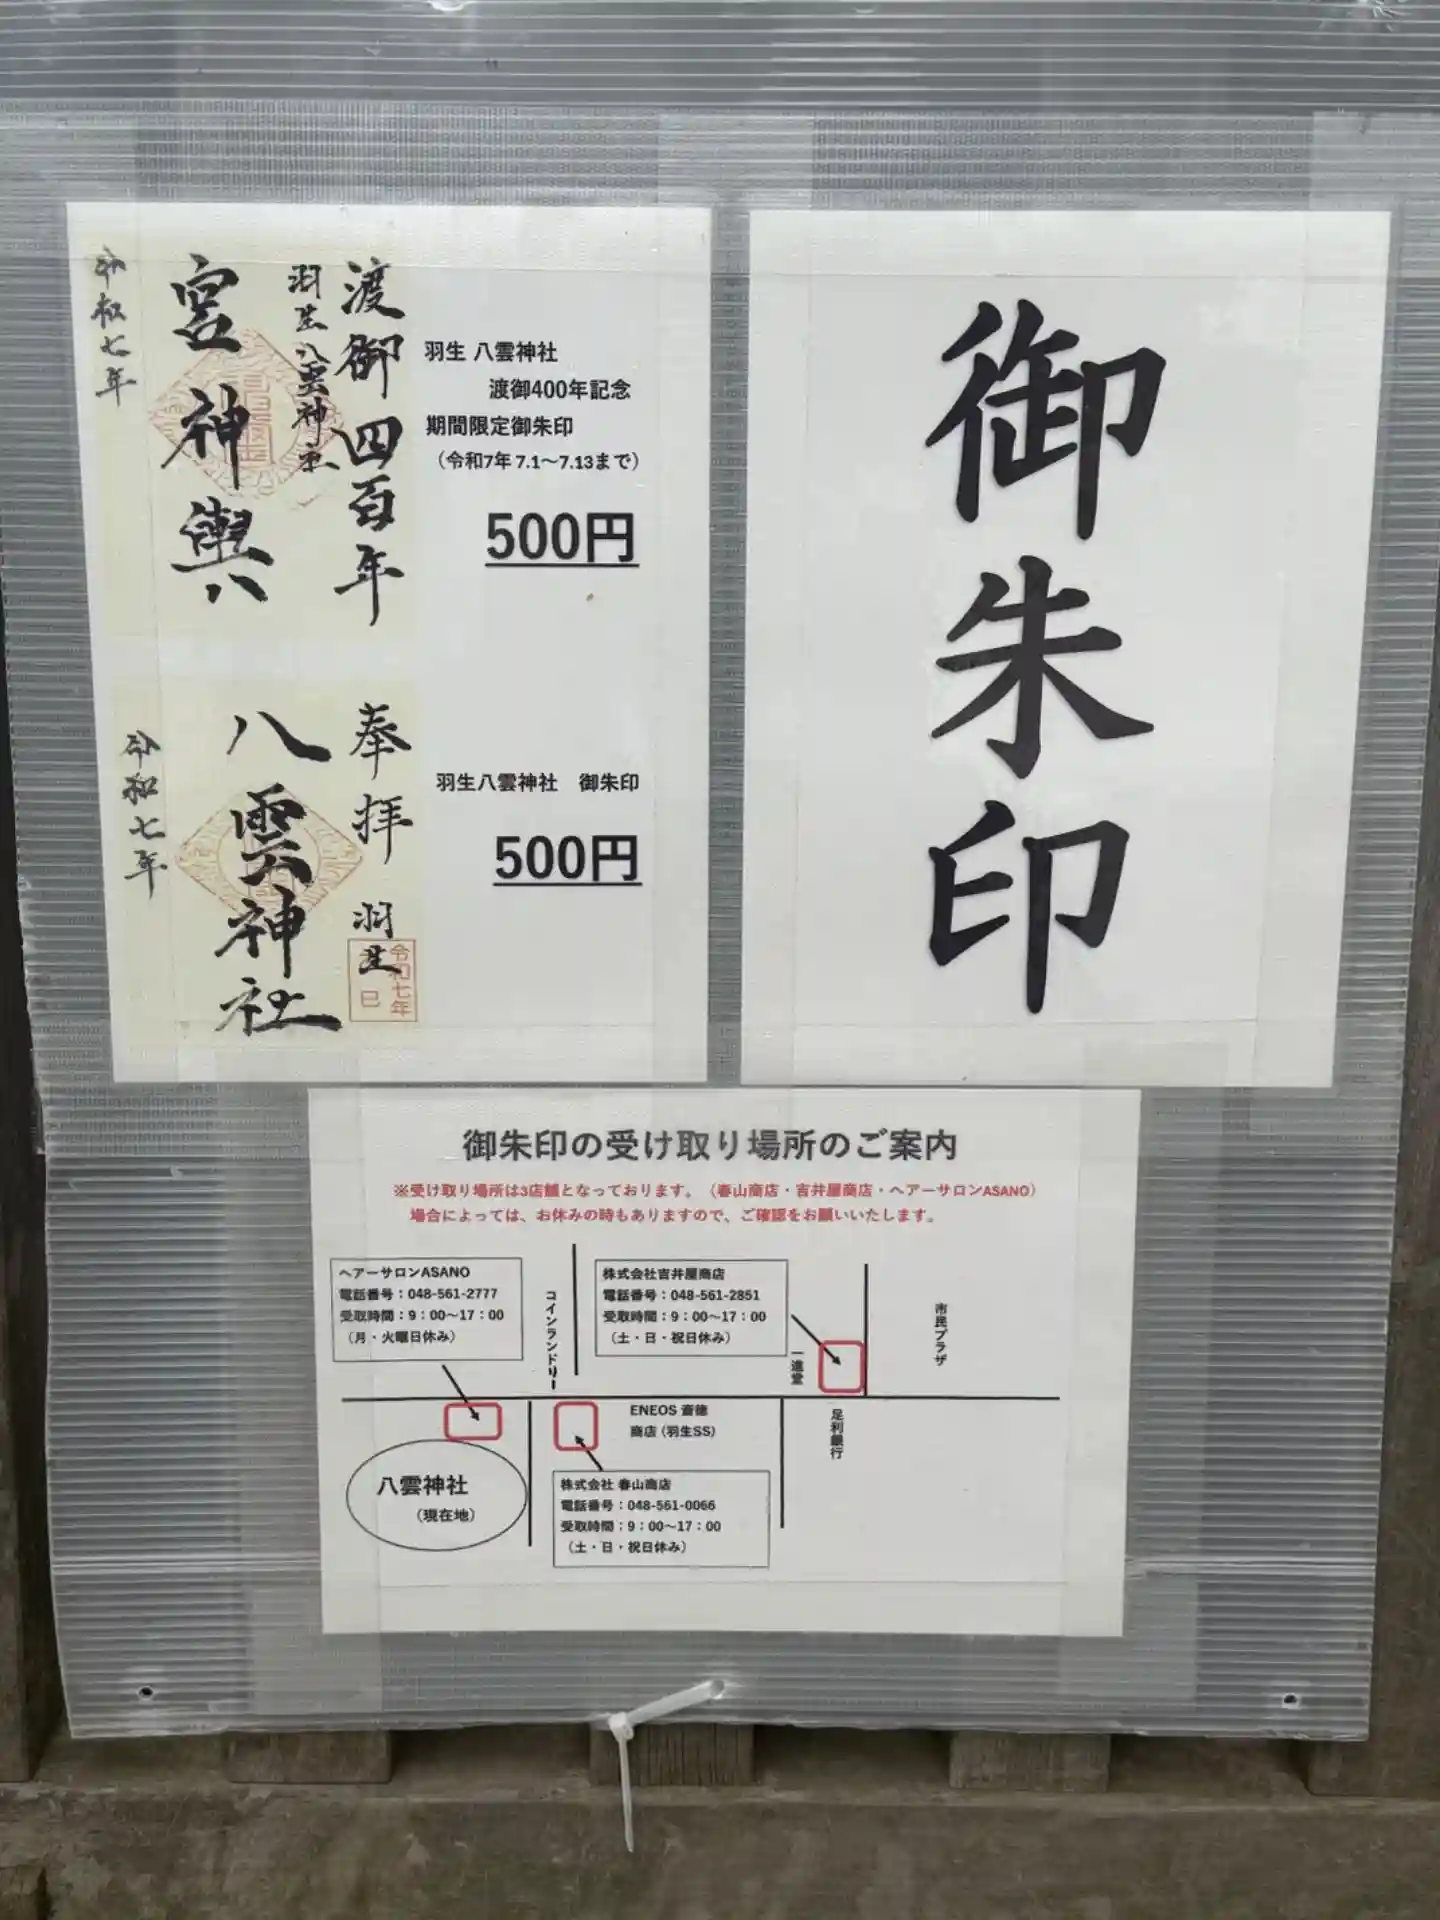 渡御四百年
羽生八雲神社
宮神輿
令和七年
羽生 八雲神社
渡御400年記念
期間限定御朱印
（令和7年 7.1〜7.13まで）
500円
奉拝 羽生
八雲神社
令和七年
令和七年
巳
羽生八雲神社　御朱印
500円
御朱印
御朱印の受け取り場所のご案内
※受け取り場所は3店舗となっております。（春山商店・吉井屋商店・ヘアーサロンASANO）
場合によっては、お休みの時もありますので、ご確認をお願いいたします。
ヘアーサロンASANO
電話番号：048-561-2777
受取時間：9：00〜17：00
（月・火曜日休み）
コインランドリー
株式会社吉井屋商店
電話番号：048-561-2851
受取時間：9：00〜17：00
（土・日・祝日休み）
一進堂
市民プラザ
ENEOS 斎徳
商店 (羽生SS)
足利銀行
八雲神社
（現在地）
株式会社 春山商店
電話番号：048-561-0066
受取時間：9：00〜17：00
（土・日・祝日休み）